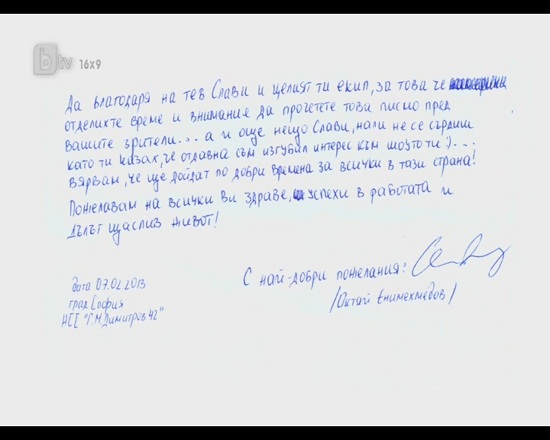 btv 16x9
Да благодаря на теб Слави и целият ти екип, за това че
отделихте време и внимание да прочетете това писмо пред
вашите зрители... а и още нещо Слави, нали не се сърдиш
като ти казах, че отдавна съм изгубил интерес към шоуто ти :)...
вярвам, че ще дойдат по добри времена за всички в тази страна!
Пожелавам на всички Ви здраве, успехи в работата и
дълът щаслив живот!
С най-добри пожелания:
/Октай Енимехмедов/
дата 07.02.2013
град София
НСС "Г.М.Димитров 42"